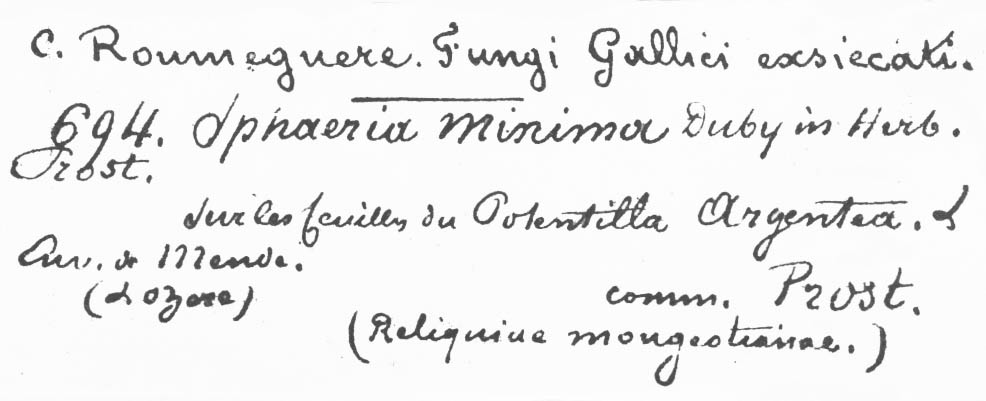 C. Roumeguere. Fungi Gallici exsiccati.
694. Sphaeria minima Duby in Herb.
Prost.
sur les feuilles du Potentilla Argentea. L
Env. de Mende.
(Lozere) comm. Prost.
(Reliquiae mougeotianae.)